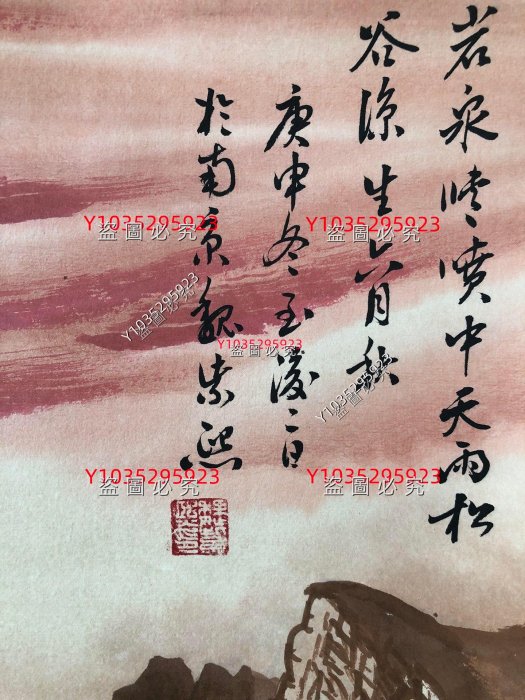 岩泉晴噴中天雨松
谷涼生六月秋
庚申冬至後二日
於南京魏紫熙
Y1035295923
盜圖必究
Y1035295923
盜圖必究
Y1035295923
盜圖必究
Y1035295923
盜圖必究
Y1035295923
盜圖必究
Y1035295923
盜圖必究
Y1035295923
盜圖必究